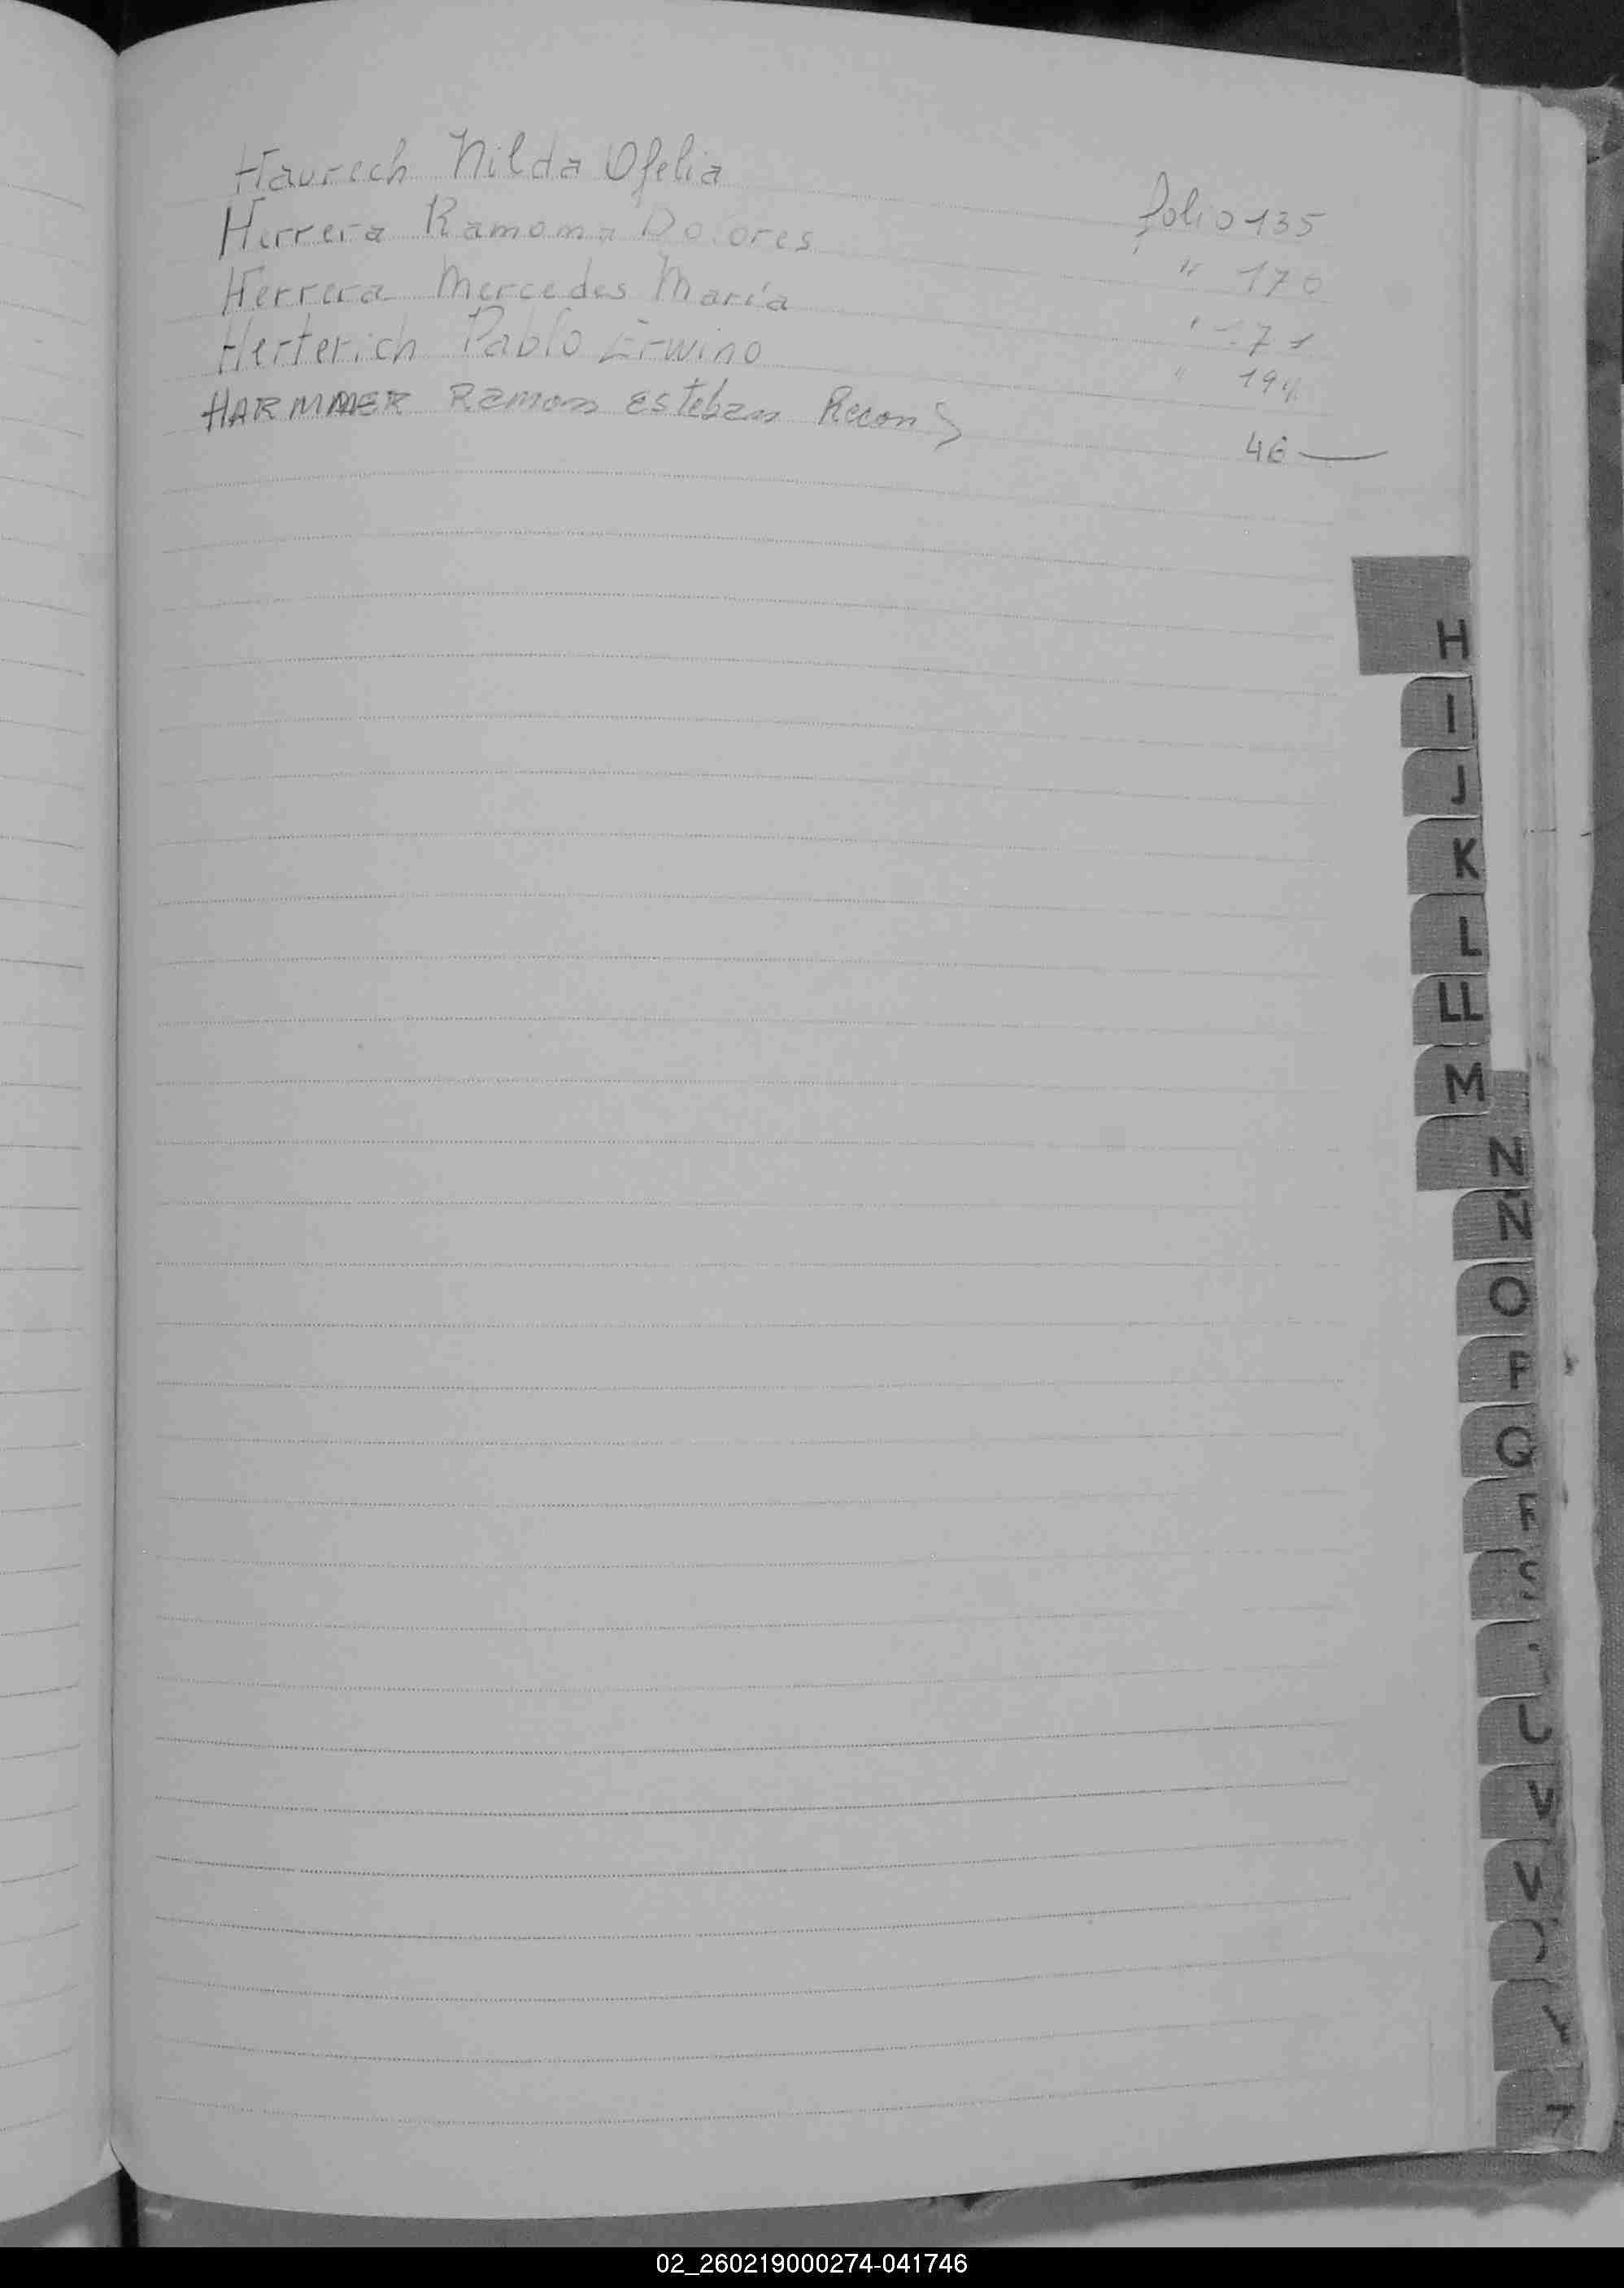 Haurech Nilda Ofelia folio 135
Herrera Ramona Dolores " 170
Herrera Mercedes María " 171
Herterich Pablo Erwino " 194
HARMMER Ramon Esteban Recon 46
H
I
J
K
L
LL
M
N
Ñ
O
P
Q
R
S
U
V
V
Y
Z
02_260219000274-041746